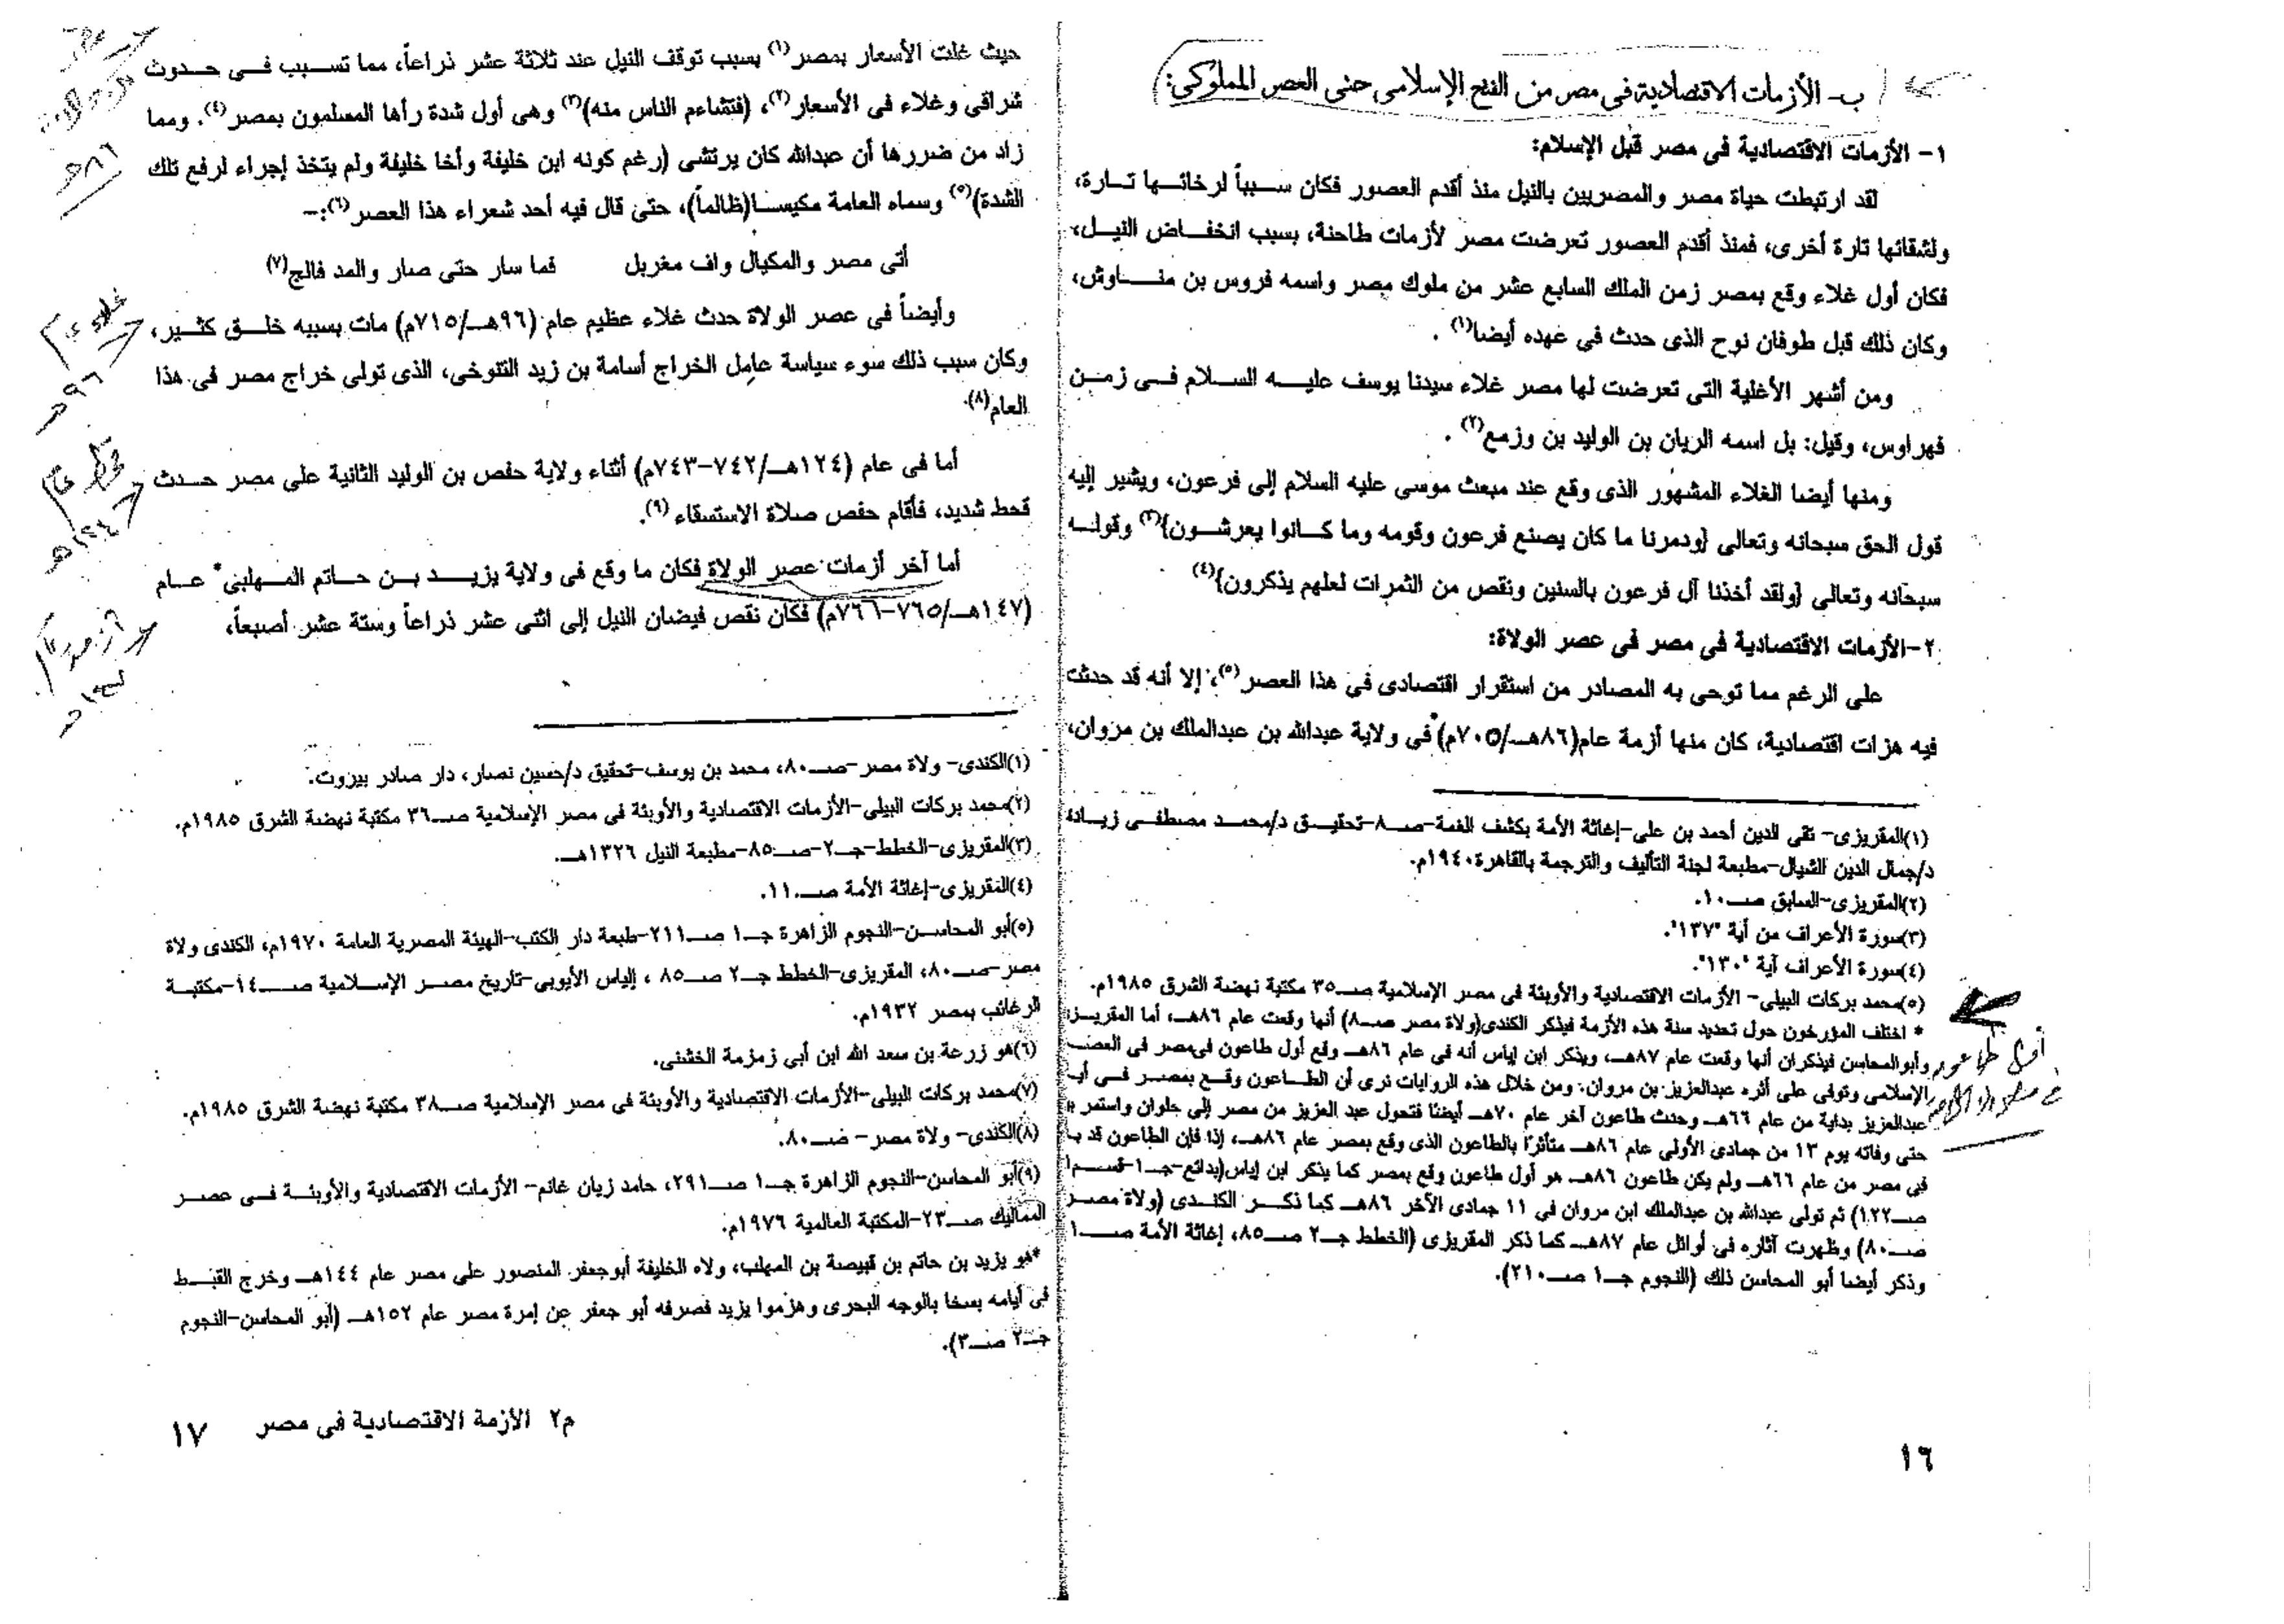 ب- الأزمات الاقتصادية فى مصر من الفتح الإسلامى حتى العصر المملوكى:
١- الأزمات الاقتصادية فى مصر قبل الإسلام:
لقد ارتبطت حياة مصر والمصريين بالنيل منذ أقدم العصور فكان سبباً لرخائها تارة،
ولشقائها تارة أخرى، فمنذ أقدم العصور تعرضت مصر لأزمات طاحنة، بسبب انخفاض النيل،
فكان أول غلاء وقع بمصر زمن الملك السابع عشر من ملوك مصر واسمه فروس بن مناوش،
وكان ذلك قبل طوفان نوح الذى حدث فى عهده أيضا(١) .
ومن أشهر الأغلية التى تعرضت لها مصر غلاء سيدنا يوسف عليه السلام فى زمن
فهراوس، وقيل: بل اسمه الريان بن الوليد بن وزمع(٢) .
ومنها أيضا الغلاء المشهور الذى وقع عند مبعث موسى عليه السلام إلى فرعون، ويشير إليه
قول الحق سبحانه وتعالى {ودمرنا ما كان يصنع فرعون وقومه وما كانوا يعرشون}(٣) وقوله
سبحانه وتعالى {ولقد أخذنا آل فرعون بالسنين ونقص من الثمرات لعلهم يذكرون}(٤)
٢-الأزمات الاقتصادية فى مصر فى عصر الولاة:
على الرغم مما توحى به المصادر من استقرار اقتصادى فى هذا العصر(٥)، إلا أنه قد حدثت
فيه هزات اقتصادية، كان منها أزمة عام(٨٦هـ/٧٠٥م)* فى ولاية عبدالله بن عبدالملك بن مروان،
(١)المقريزى- تقى الدين أحمد بن على-إغاثة الأمة بكشف الغمة-صـ٨-تحقيق د/محمد مصطفى زيادة
د/جمال الدين الشيال-مطبعة لجنة التأليف والترجمة بالقاهرة١٩٤٠م.
(٢)المقريزى-السابق صـ١٠.
(٣)سورة الأعراف من آية "١٣٧".
(٤)سورة الأعراف آية "١٣٠".
(٥)محمد بركات البيلى- الأزمات الاقتصادية والأوبئة فى مصر الإسلامية صـ٣٥ مكتبة نهضة الشرق ١٩٨٥م.
* اختلف المؤرخون حول تحديد سنة هذه الأزمة فيذكر الكندى(ولاة مصر صـ٨) أنها وقعت عام ٨٦هـ، أما المقريزى
وأبو المحاسن فيذكران أنها وقعت عام ٨٧هـ، ويذكر ابن إياس أنه فى عام ٨٦هـ وقع أول طاعون فى مصر فى العصر
الإسلامى وتوفى على أثره عبدالعزيز بن مروان. ومن خلال هذه الروايات نرى أن الطاعون وقع بمصر فى
عبدالعزيز بداية من عام ٦٦هـ وحدث طاعون آخر عام ٧٠هـ أيضا فتحول عبد العزيز من مصر إلى حلوان واستمر
حتى وفاته يوم ١٣ من جمادى الأولى عام ٨٦هـ متأثرًا بالطاعون الذى وقع بمصر عام ٨٦هـ، إذا فإن الطاعون قد
فى مصر من عام ٦٦هـ ولم يكن طاعون ٨٦هـ هو أول طاعون وقع بمصر كما يذكر ابن إياس(بدائع-جـ١-قسم١
صـ١٢٢) ثم تولى عبدالله بن عبدالملك ابن مروان فى ١١ جمادى الآخر ٨٦هـ كما ذكر الكندى (ولاة مصر
صـ٨٠) وظهرت آثاره فى أوائل عام ٨٧هـ كما ذكر المقريزى (الخطط جـ٢ صـ٨٥، إغاثة الأمة صـ١
وذكر أيضا أبو المحاسن ذلك (النجوم جـ١ صـ٢١٠).
أول طاعون
١٦
حيث غلت الأسعار بمصر(١) بسبب توقف النيل عند ثلاثة عشر ذراعاً، مما تسبب فى حدوث
شراقى وغلاء فى الأسعار(٢)، (فتشاءم الناس منه)(٣) وهى أول شدة رأها المسلمون بمصر(٤). ومما
زاد من ضررها أن عبدالله كان يرتشى (رغم كونه ابن خليفة وأخا خليفة ولم يتخذ إجراء لرفع تلك
الشدة)(٥) وسماه العامة مكيسا(ظالماً)، حتى قال فيه أحد شعراء هذا العصر(٦):-
أتى مصر والمكيال واف مغربل فما سار حتى صار والمد فالج(٧)
وأيضاً فى عصر الولاة حدث غلاء عظيم عام (٩٦هـ/٧١٥م) مات بسببه خلق كثير،
وكان سبب ذلك سوء سياسة عامل الخراج أسامة بن زيد التنوخى، الذى تولى خراج مصر فى هذا
العام(٨).
أما فى عام (١٢٤هـ/٧٤٢-٧٤٣م) أثناء ولاية حفص بن الوليد الثانية على مصر حدث
قحط شديد، فأقام حفص صلاة الاستسقاء (٩).
أما آخر أزمات عصر الولاة فكان ما وقع فى ولاية يزيد بن حاتم المهلبى* عام
(١٤٧هـ/٧٦٥-٧٦٦م) فكان نقص فيضان النيل إلى اثنى عشر ذراعاً وستة عشر أصبعاً،
٨٦هـ
غلاء عام
٩٦هـ
قحط عام
١٢٤هـ
(١)الكندى- ولاة مصر-صـ٨٠، محمد بن يوسف-تحقيق د/حسين نصار، دار صادر بيروت.
(٢)محمد بركات البيلى-الأزمات الاقتصادية والأوبئة فى مصر الإسلامية صـ٣٦ مكتبة نهضة الشرق ١٩٨٥م.
(٣)المقريزى-الخطط-جـ٢-صـ٨٥-مطبعة النيل ١٣٢٦هـ.
(٤)المقريزى-إغاثة الأمة صـ١١.
(٥)أبو المحاسن-النجوم الزاهرة جـ١ صـ٢١١-طبعة دار الكتب-الهيئة المصرية العامة ١٩٧٠م، الكندى ولاة
مصر-صـ٨٠، المقريزى-الخطط جـ٢ صـ٨٥ ، إلياس الأيوبى-تاريخ مصر الإسلامية صـ١٤-مكتبة
الرغائب بمصر ١٩٣٢م.
(٦)هو زرعة بن سعد الله ابن أبي زمزمة الخشنى.
(٧)محمد بركات البيلى-الأزمات الاقتصادية والأوبئة فى مصر الإسلامية صـ٣٨ مكتبة نهضة الشرق ١٩٨٥م.
(٨)الكندى- ولاة مصر- صـ٨٠.
(٩)أبو المحاسن-النجوم الزاهرة جـ١ صـ٢٩١، حامد زيان غانم- الأزمات الاقتصادية والأوبئة فى عصر
المماليك صـ٢٣-المكتبة العالمية ١٩٧٦م.
*هو يزيد بن حاتم بن قبيصة بن المهلب، ولاه الخليفة أبوجعفر المنصور على مصر عام ١٤٤هـ وخرج القبط
فى أيامه بسخا بالوجه البحرى وهزموا يزيد فصرفه أبو جعفر عن إمرة مصر عام ١٥٢هـ (أبو المحاسن-النجوم
جـ٢ صـ٣).
م٢ الأزمة الاقتصادية فى مصر ١٧